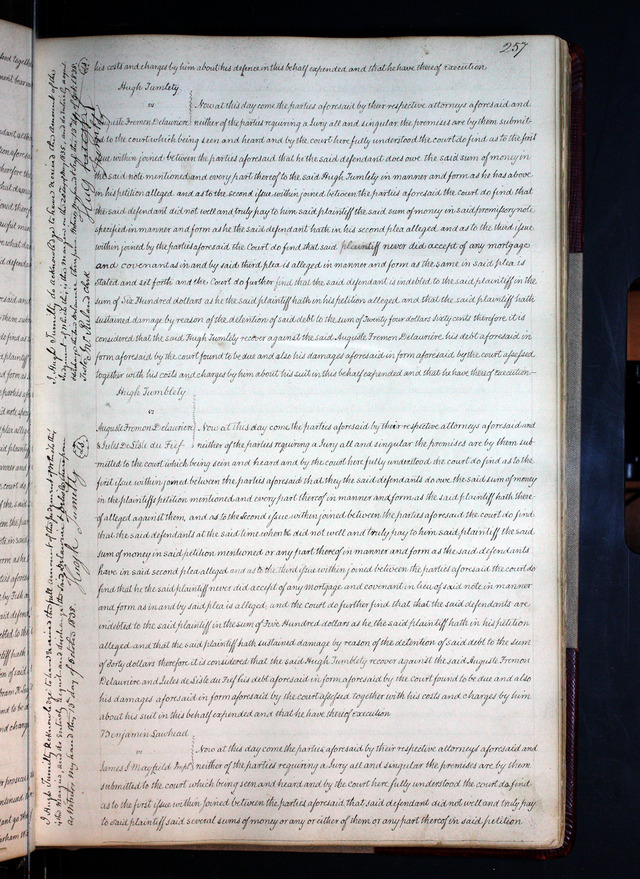 257
his costs and charges by him about his defence in this behalf expended and that he have thereof execution
Hugh Tumlety
vs
Auguste Fremon Delauriere
Now at this day come the parties aforesaid by their respective attorneys aforesaid and
neither of the parties requiring a Jury all and singular the premises are by them submit-
ted to the court which being seen and heard and by the court here fully understood the court do find as to the first
issue within joined between the parties aforesaid that he the said defendant does owe the said sum of money in
the said note mentioned and every part thereof to the said Hugh Tumlety in manner and form as he has above
in his petition alleged and as to the second issue within joined between the parties aforesaid the court do find that
the said defendant did not well and truly pay to him said plaintiff the said sum of money in said promissory note
specified in manner and form as he the said defendant hath in his second plea alleged and as to the third issue
within joined by the parties aforesaid the Court do find that said plaintiff never did accept of any mortgage
and covenant as in and by said third plea is alleged in manner and form as the same in said plea is
stated and set forth and the Court do further find that the said defendant is indebted to the said plaintiff in the
sum of Six Hundred dollars as he the said plaintiff hath in his petition alleged and that the said plaintiff hath
sustained damage by reason of the detention of said debt to the sum of Twenty four dollars sixty cents therefore it is
considered that the said Hugh Tumlety recover against the said Auguste Fremon Delauriere his debt aforesaid in
form aforesaid by the court found to be due and also his damages aforesaid in form aforesaid by the court assessed
together with his costs and charges by him about his suit in this behalf expended and that he have thereof execution
Hugh Tumblety
vs
Auguste Fremon Delauriere
& Jules De Lisle du Fief
Now at this day come the parties aforesaid by their respective attorneys aforesaid and
neither of the parties requiring a Jury all and singular the premises are by them sub-
mitted to the court which being seen and heard and by the court here fully understood the court do find as to the
first issue within joined between the parties aforesaid that they the said defendants do owe the said sum of money
in the plaintiffs petition mentioned and every part thereof in manner and form as the said plaintiff hath there
of alleged against them, and as to the Second issue within joined between the parties aforesaid the court do find
that the said defendants at the said time when &c did not well and truly pay to him said plaintiff the said
sum of money in said petition mentioned or any part thereof in manner and form as the said defendants
have in said second plea alleged and as to the third issue within joined between the parties aforesaid the court do
find that he the said plaintiff never did accept of any Mortgage and covenant in lieu of said note in manner
and form as in and by said plea is alleged, and the court do further find that that the said defendants are
indebted to the said plaintiff in the sum of Five Hundred dollars as he the said plaintiff hath in his petition
alleged and that the said plaintiff hath sustained damage by reason of the detention of said debt to the sum
of forty dollars therefore it is considered that the said Hugh Tumblety recover against the said Auguste Fremon
Delauriere and Jules de Lisle du Fief his debt aforesaid in form aforesaid by the court found to be due and also
his damages aforesaid in form aforesaid by the court assessed together with his costs and charges by him
about his suit in this behalf expended and that he have thereof execution
Benjamin Lawhead
vs
James S Mayfield Impl
Now at this day come the parties aforesaid by their respective attorneys aforesaid and
neither of the parties requiring a Jury all and singular the premises are by them
submitted to the court which being seen and heard and by the court here fully understood the court do find
as to the first issue within joined between the parties aforesaid that said defendant did not well and truly pay
to said plaintiff said several sums of money or any or either of them or any part thereof in said petition
I, Hugh Tumilty, do acknowledge to have received the amount of the
Hugh Tumilty
I Hugh Tumilty Acknowledge to have received the full amount of this judgment
Hugh Tumilty